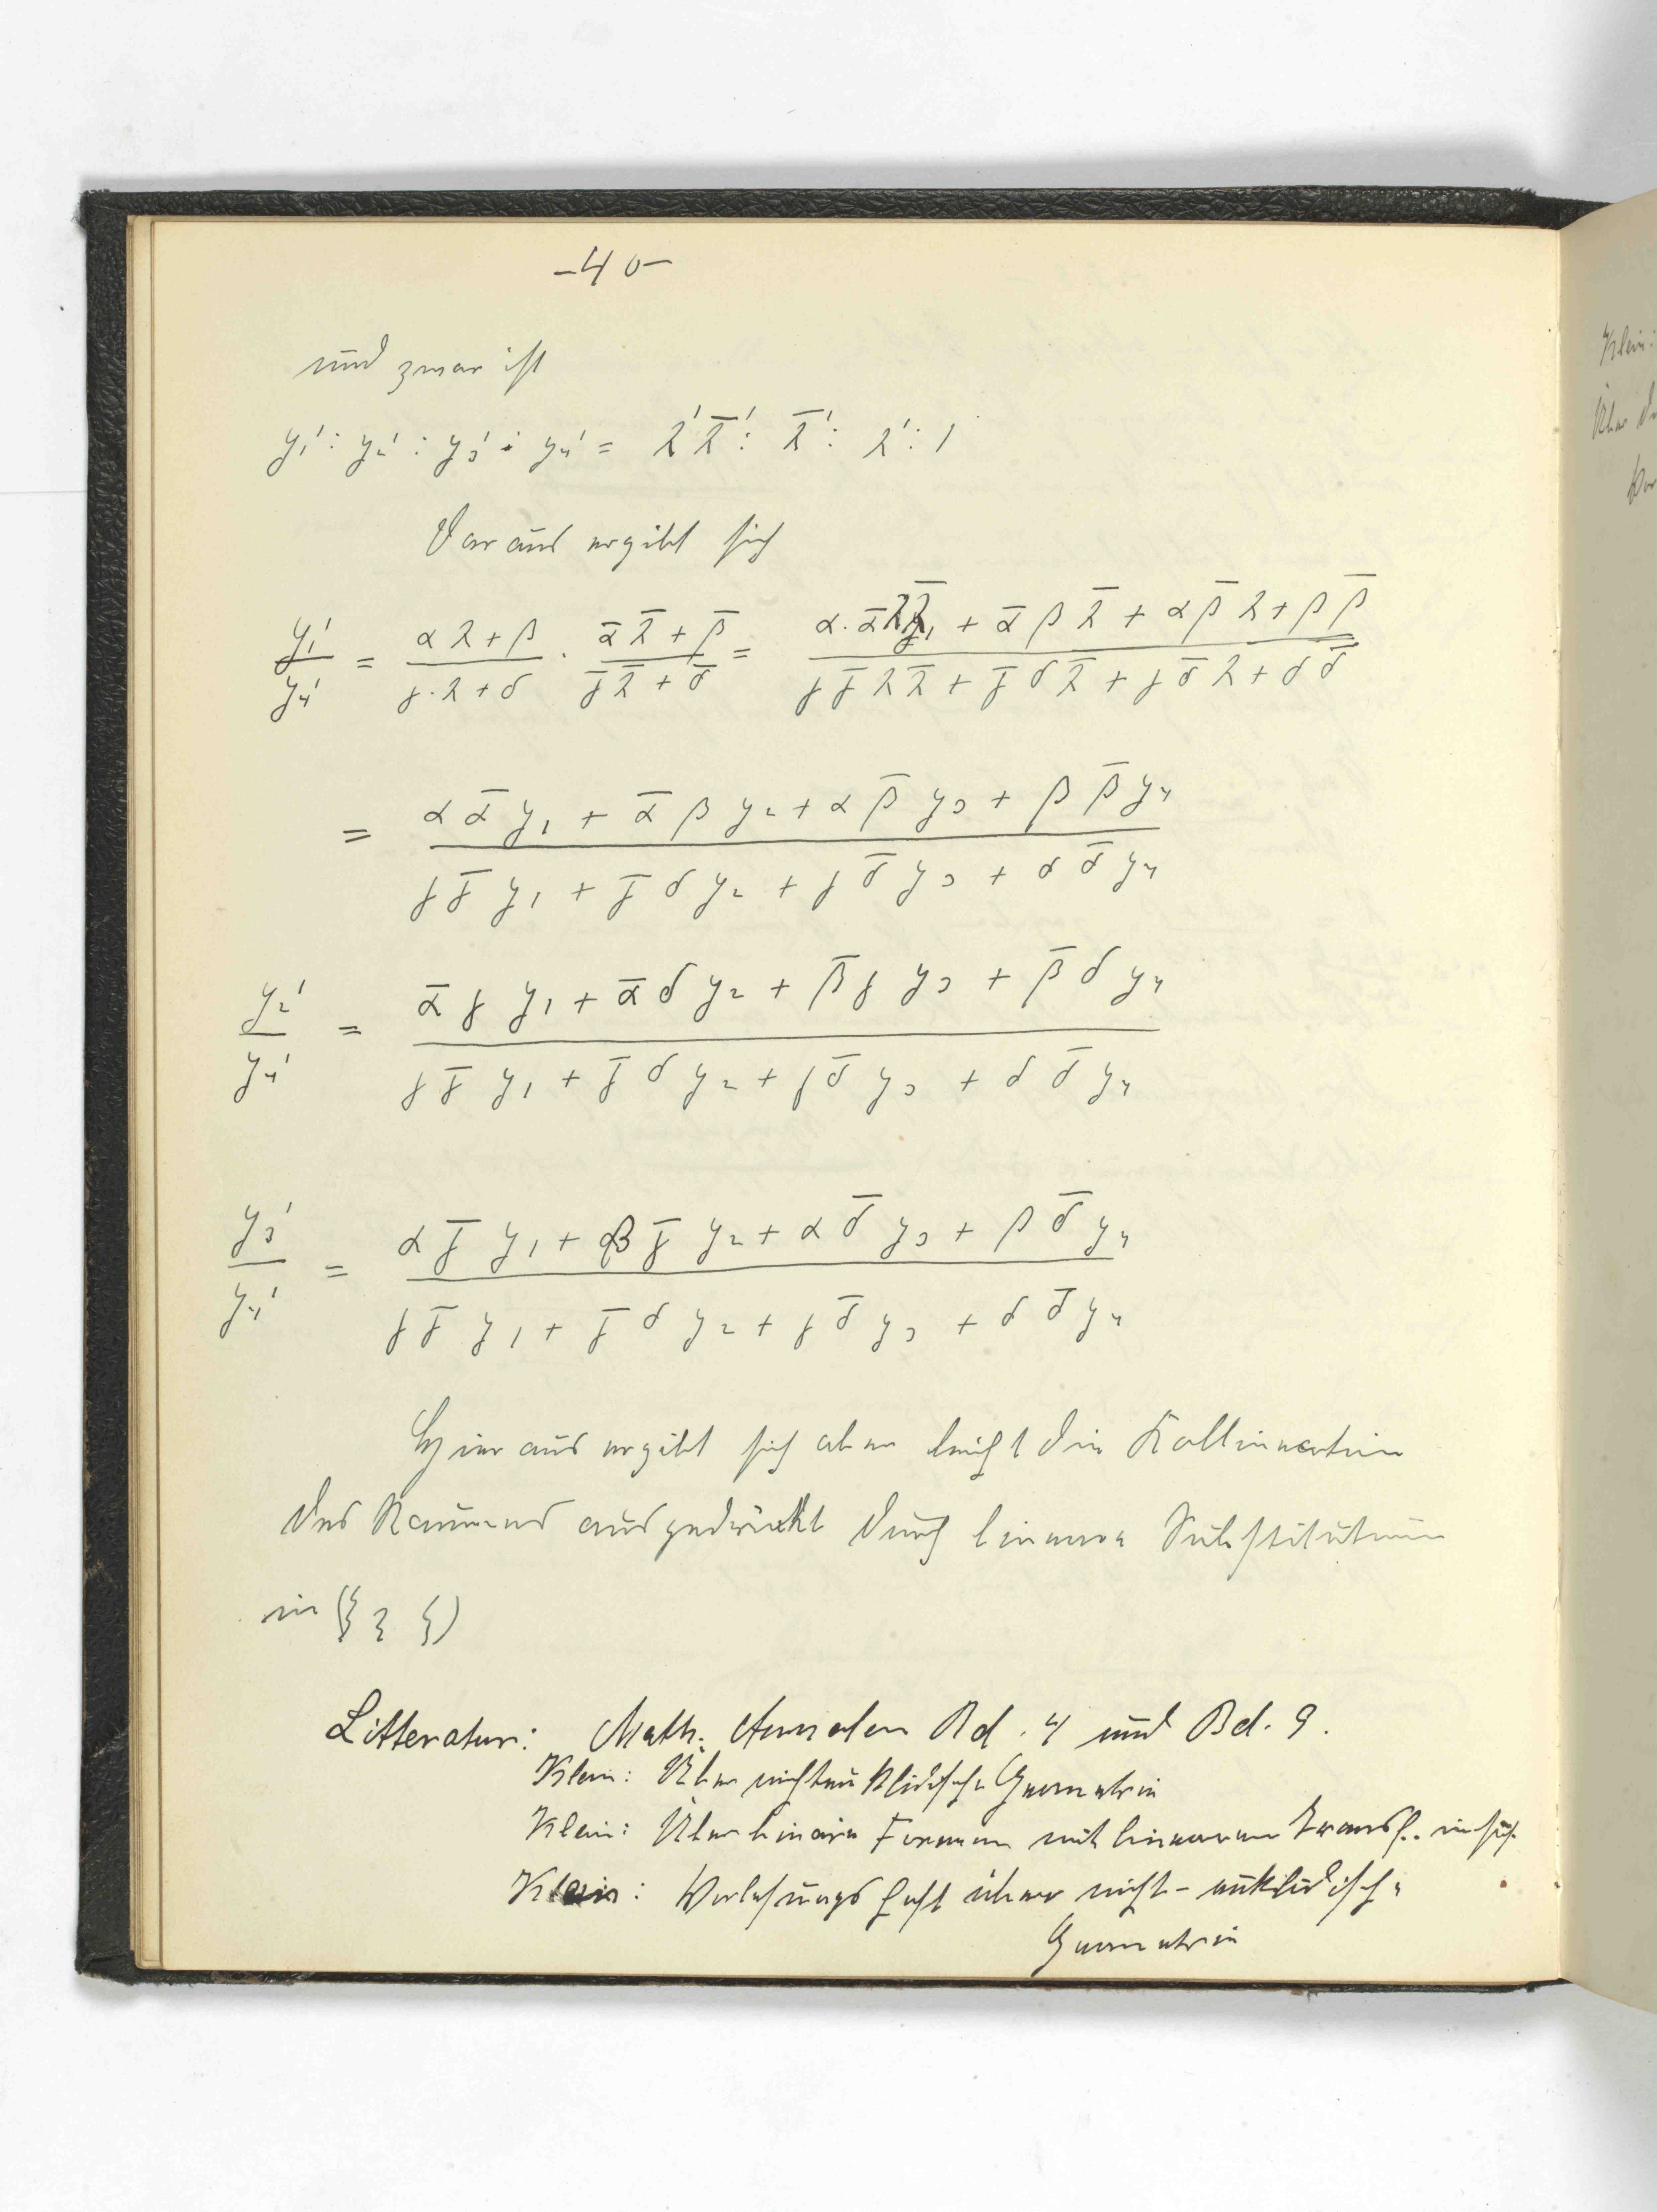 -40-
und zwar ist
y₁' : y₂' : y₃' : y₄' = λ'λ̄' : λ̄' : λ' : 1
Daraus ergibt sich
y₁'/y₄' = (αλ+β)/(γ·λ+δ) · (ᾱλ̄+β̄)/(γ̄λ̄+δ̄) = (α·ᾱλλ̄ + ᾱβλ̄ + αβ̄λ + ββ̄)/(γγ̄λλ̄ + γ̄δλ̄ + γδ̄λ + δδ̄)
= (αᾱy₁ + ᾱβy₂ + αβ̄y₃ + ββ̄y₄)/(γγ̄y₁ + γ̄δy₂ + γδ̄y₃ + δδ̄y₄)
y₂'/y₄' = (ᾱγy₁ + ᾱδy₂ + β̄γy₃ + β̄δy₄)/(γγ̄y₁ + γ̄δy₂ + γδ̄y₃ + δδ̄y₄)
y₃'/y₄' = (αγ̄y₁ + βγ̄y₂ + αδ̄y₃ + βδ̄y₄)/(γγ̄y₁ + γ̄δy₂ + γδ̄y₃ + δδ̄y₄)
Hieraus ergibt sich aber leicht die Kollineation
des Raumes ausgedrückt durch lineare Substitution
in (ξ η ζ)
Litteratur: Math. Annalen Bd. 4 und Bd. 9.
Klein: Über nichteuklidische Geometrie
Klein: Über binäre Formen mit linearen Transf. in sich
Klein: Vorlesungsheft über nicht-euklidische
Geometrie
Klein: